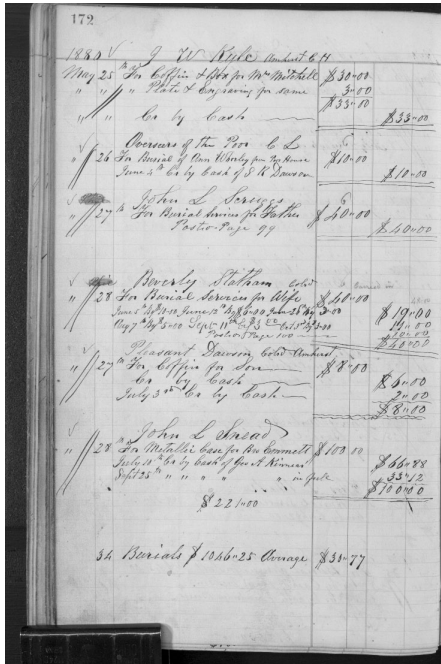 172
1882 J W Kyle Amherst C H
May 25 th For Coffin & Box for Mrs Mitchell $30"00
" " " " Plate & Engraving for same 3"00
$33"00
" " Cr by Cash $33"00
Overseers of the Poor C L
" 26 For Burial of Ann from House $10"00
June 4th Cr by Cash of S R Dawson $10"00
John L Scruggs
" 27 th For Burial Services for Father $40"00
Posto Page 99 $40"00
Beverly Statham Cold
" 28 For Burial Services for Wife $40"00
June 5th By $10.10 June 12th By $6"00 June 25th By 3"00 $19"00
Aug 7th By $5"00 Sept 11th By $3.00 Oct 5th By 3"00 11"00
Posto Page 100 10"00
$40"00
Pleasant Dawson Cold Amherst
" 27 th For Coffin for Son $8"00
Cr by Cash $6"00
July 3rd Cr by Cash 2"00
$8"00
John L Snead
" 28 th For Metallic Case for Bro Emmett $100 00
July 11th Cr by Cash of Geo A $66"88
Sept 25th " " " " " in full 33"12
$100"00
$221"00
34 Burials $1046"25 Average $30"77